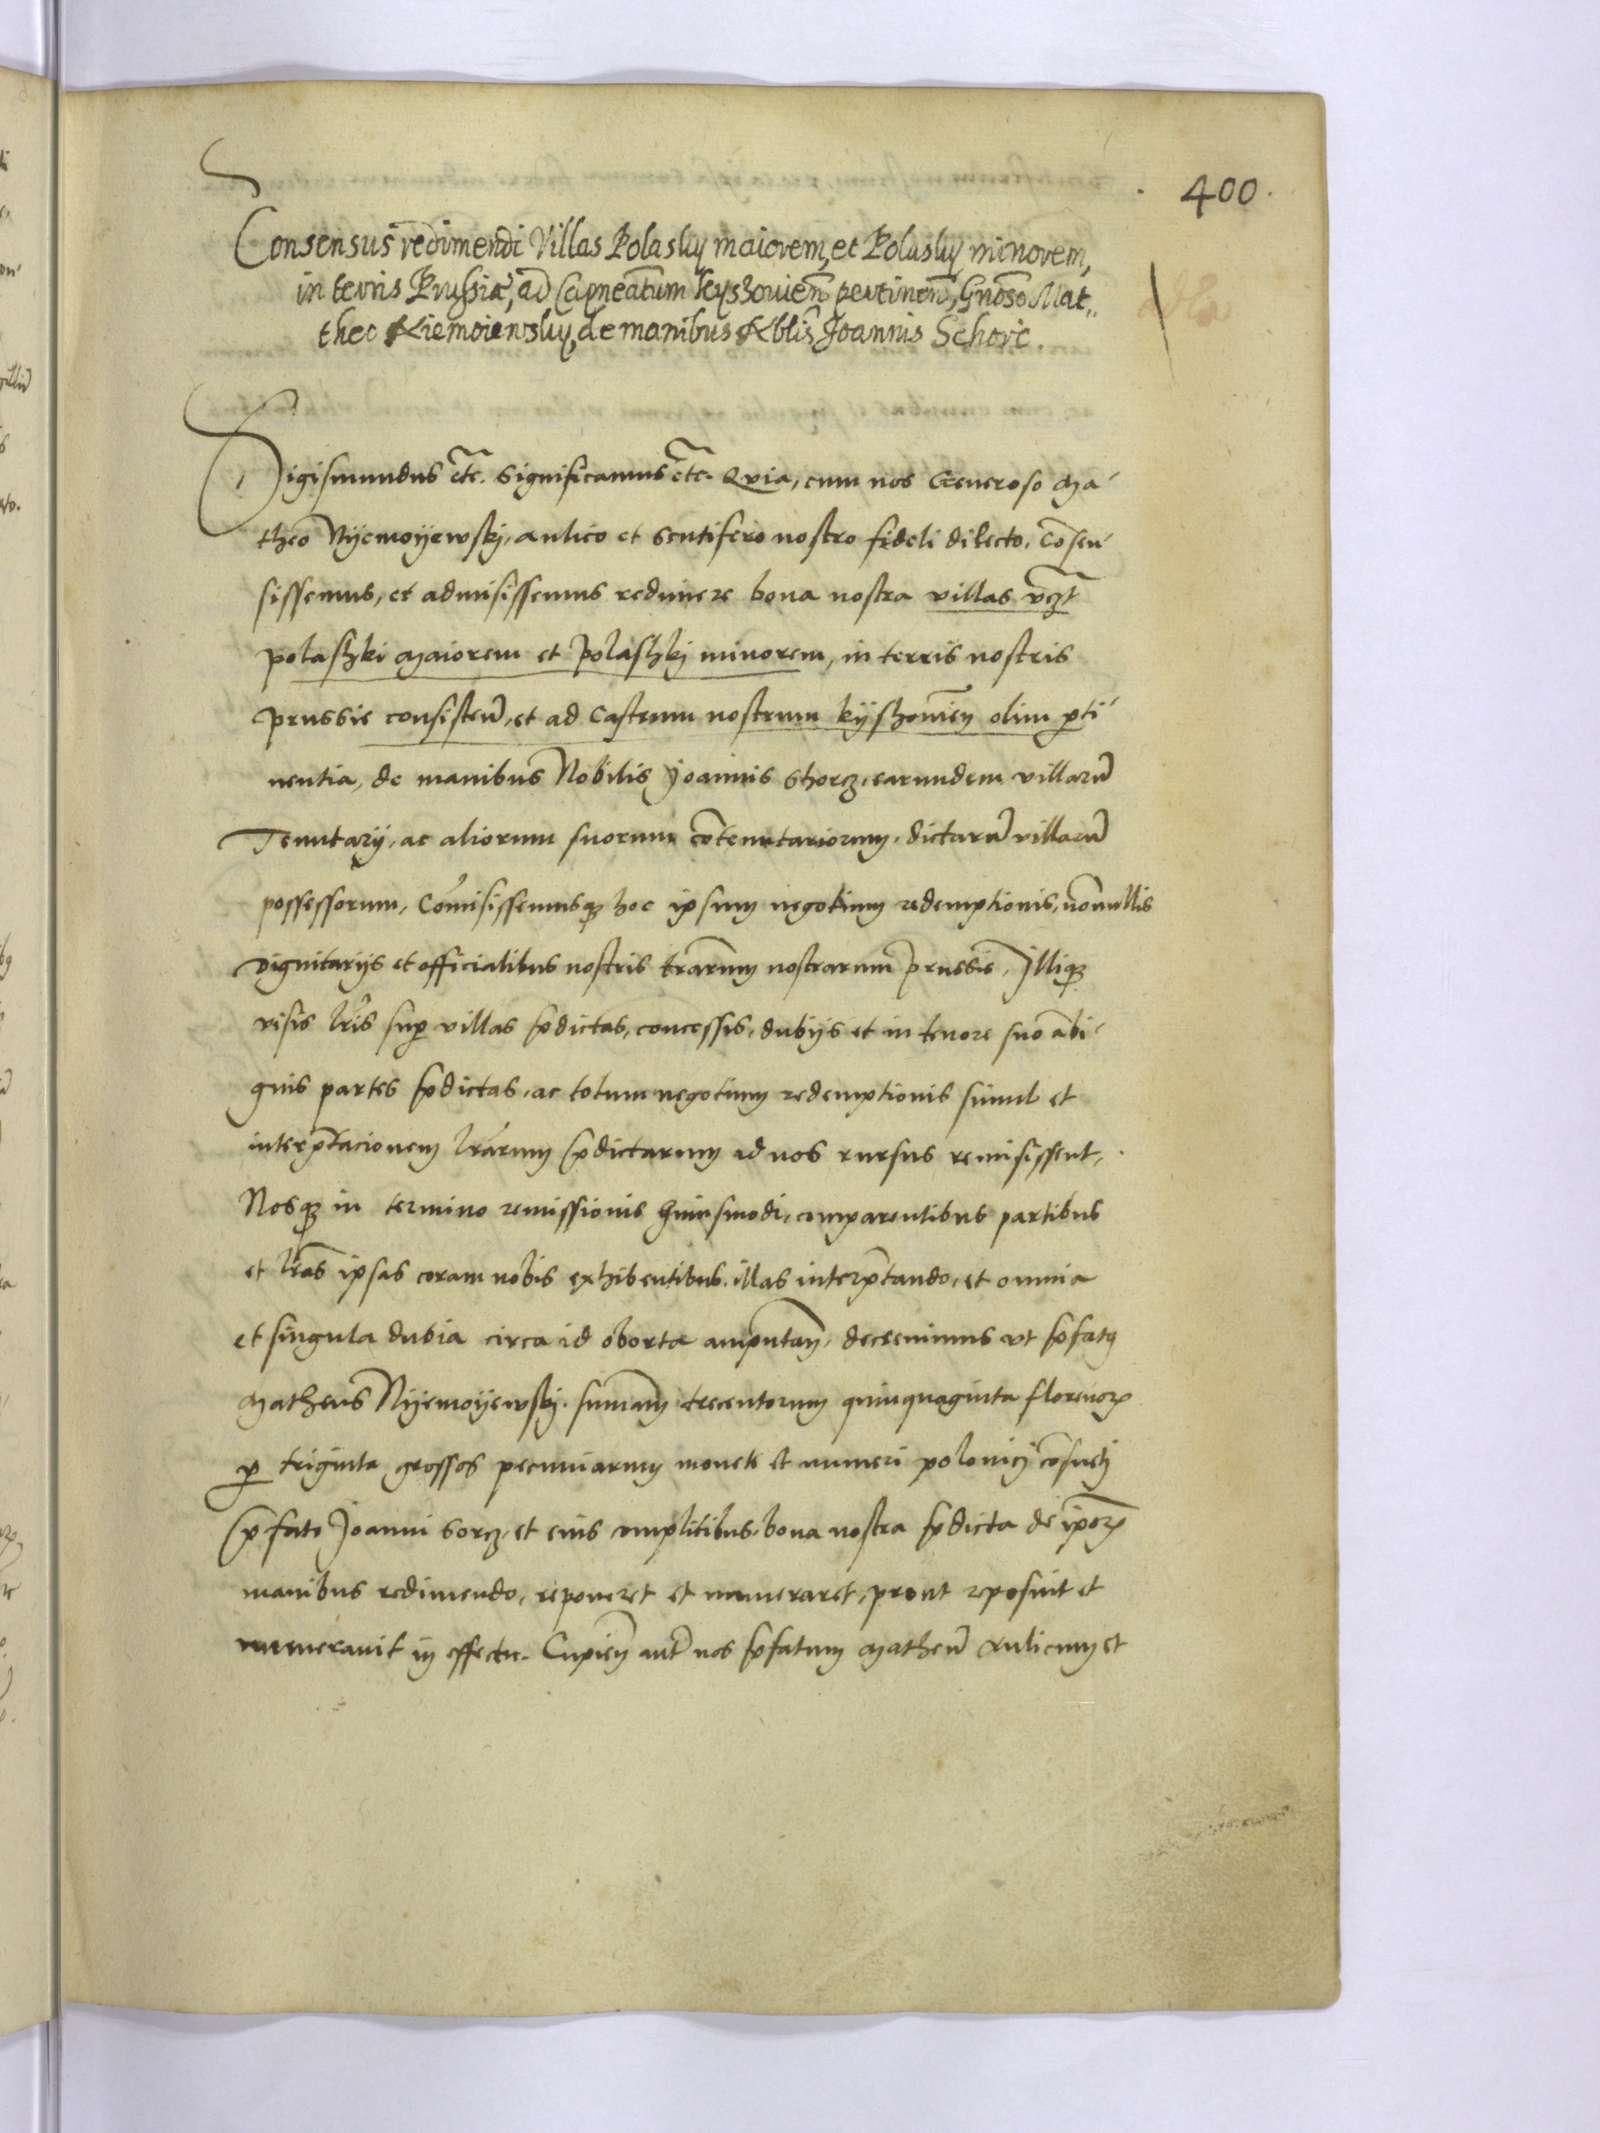 400.
Consensus redimendi Villas Polasky maiorem, et Polasky minorem,
in terris Prussiæ, ad Capneatum kyszovien̄ pertinen̄, Gnoso Mat„
theo Niemoiewsky, de manibus Nblis Joannis Schorc.
Sigismundus etc. Significamus etc. Quia, cum nos Generoso Ma-
theo Nijemoijewskj, aulico et scutifero nostro fideli dilecto, cōsen-
sissemus, et admisissemus redimere bona nostra villas vcȝt
polashki Maiorem et Polashkj minorem, in terris nostris
prussie consisteñ, et ad Castrum nostrum kijshovien̄ olim p̄ti-
nentia, de manibus Nobilis Joannis Shorcz, earundem villarū
Tenutarij, ac aliorum suorum cōtenutariorum, dictarū villarū
possessorum, Cōmisissemusqȝ hoc ipsum negotium redemptionis, nōnullis
dignitarijs et officialibus nostris trarum nostrarum Prussie, Illiqȝ
visis lr̄is sup̄ villas p̄dictas, concessis, dubijs et in tenore suo ābi-
guis partes p̄dictas, ac totum negotium redemptionis simul et
interp̄tacionem lr̄arum p̄dictarum ad nos rursus remisissent,
Nosqȝ in termino remissionis huiusmodi, comparentibus partibus
et lr̄as ipsas coram nobis exhibentibus, illas interp̄tando, et omnia
et singula dubia circa id oborta amputan̄, decrevimus vt p̄fatq
Matheus Nijemoijewskj, sum̄am trecentorum quinquaginta florenorꝝ
p̄ triginta grossos pecuniarum monete et numeri polonicj cōsuetj
p̄fato Joanni Sorcz, et eius complitibus, bona nostra p̄dicta de ip̄orꝝ
manibus redimendo, reponeret et numeraret, prout reposuit et
numeravit in effectu. Cupien̄ aut̄ nos p̄fatum Matheū Aulicum et